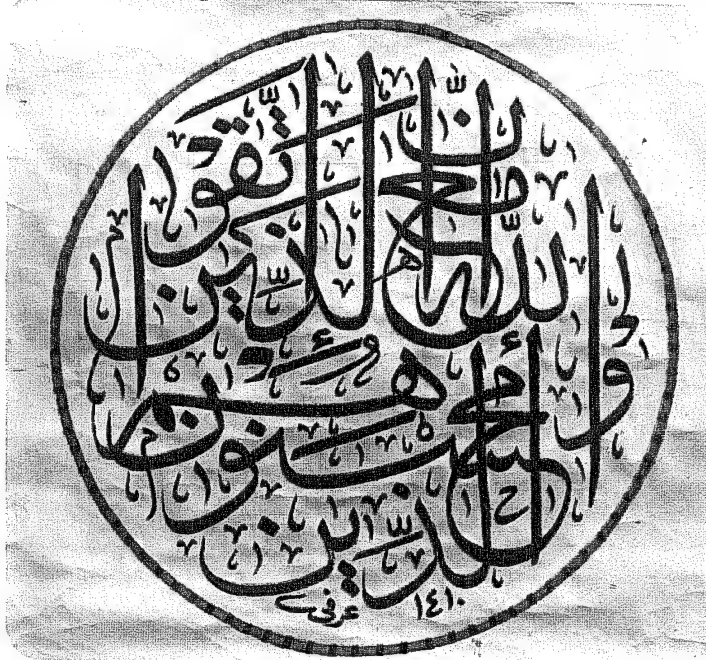 إن الله مع الذين اتقوا
والذين هم محسنون
عرفي ١٤١٠